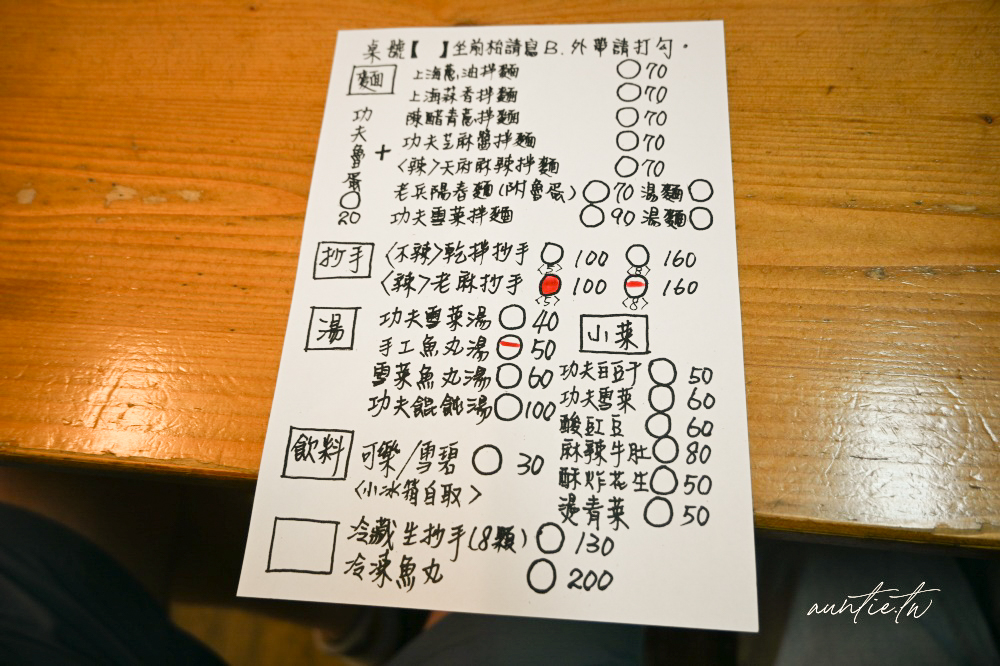 桌號【 】坐前枱請寫B.外帶請打勾。
麵
上海蔥油拌麵 ○70
上海蒜香拌麵 ○70
陳醋青蔥拌麵 ○70
功夫芝麻醬拌麵 ○70
〈辣〉天府麻辣拌麵 ○70
老兵陽春麵(附魯蛋) ○70 湯麵○
功夫雪菜拌麵 ○90 湯麵○
功夫魯蛋○20 +
抄手
〈不辣〉乾拌抄手 ○100 〈5〉 ○160 〈8〉
〈辣〉老麻抄手 ○100 〈5〉 ○160 〈8〉
湯
功夫雪菜湯○40
手工魚丸湯○50
雪菜魚丸湯○60
功夫餛飩湯○100
小菜
功夫豆干○50
功夫雪菜○60
酸豇豆○60
麻辣牛肚○80
酥炸花生○50
燙青菜○50
飲料
可樂/雪碧 ○30
〈小冰箱自取〉
冷藏生抄手(8顆) ○130
冷凍魚丸 ○200
auntie.tw